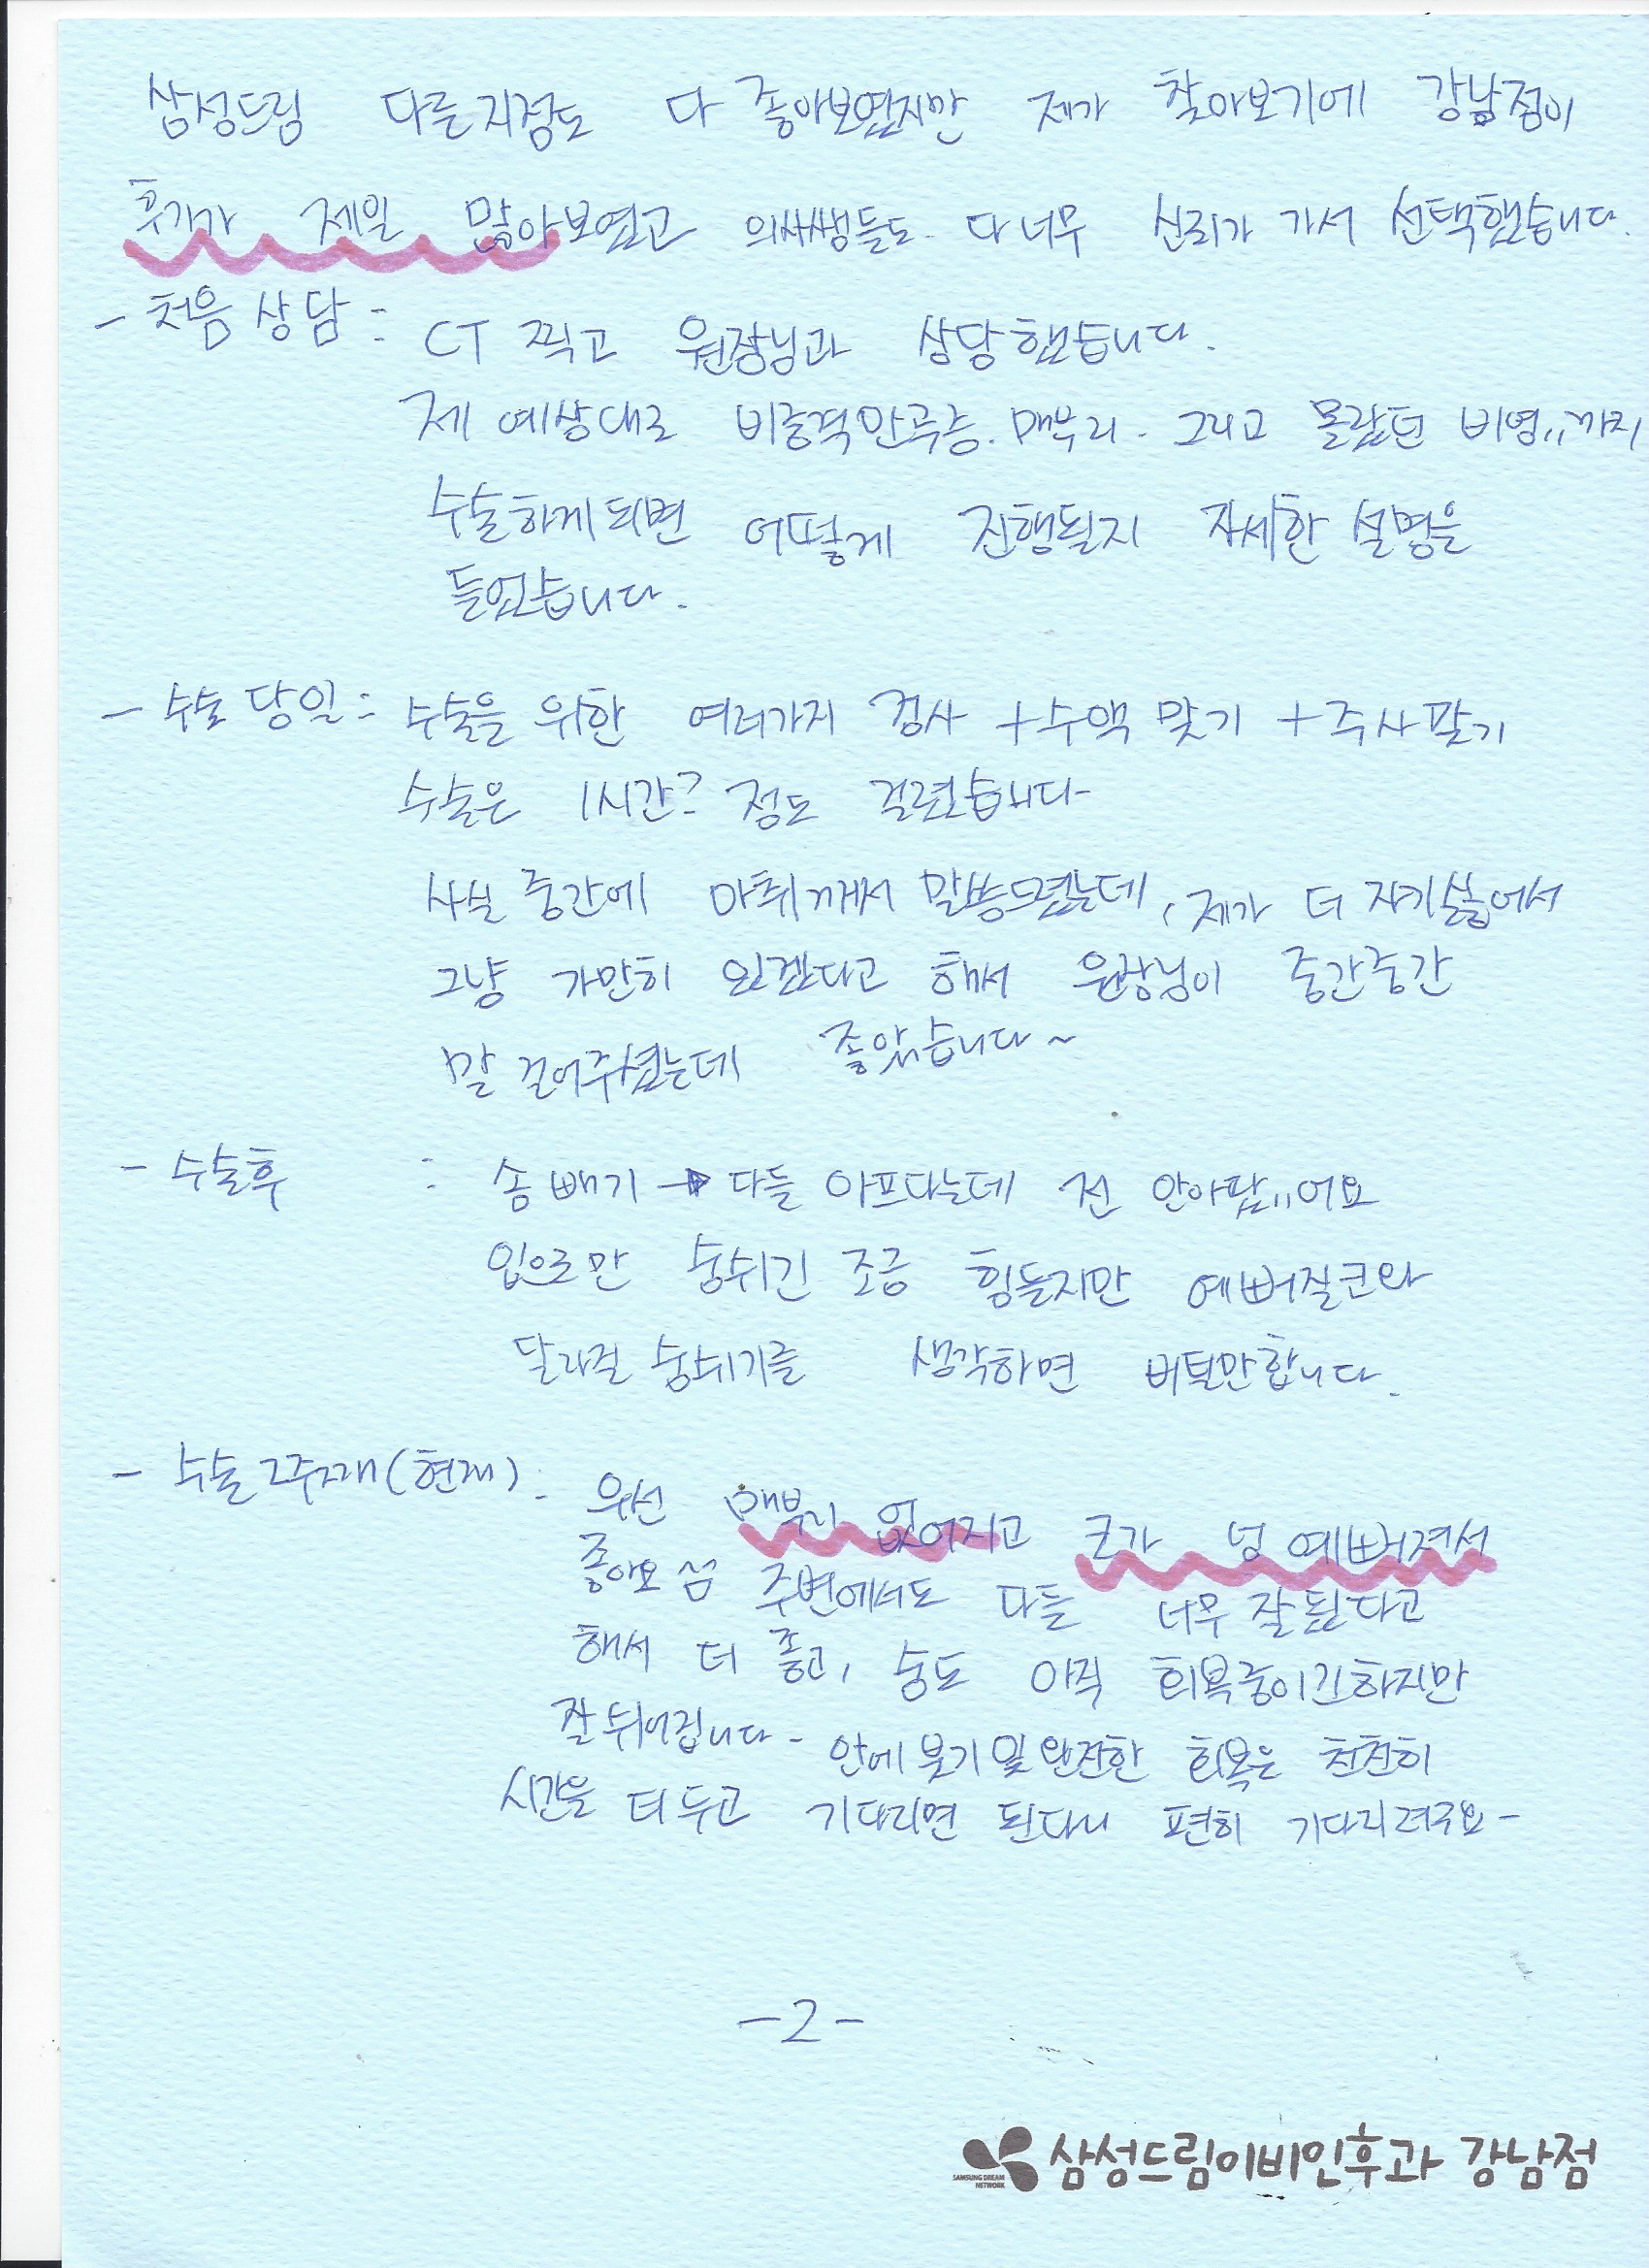 삼성드림 다른지점도 다 좋아보였지만 제가 찾아보기에 강남점이
후기가 제일 많아보였고 의사쌤들도 다 너무 신뢰가 가서 선택했습니다.
- 처음 상담 : CT 찍고 원장님과 상담했습니다.
제 예상대로 비중격만곡증. 매부리. 그리고 몰랐던 비염까지
수술하게되면 어떻게 진행될지 자세한 설명을
들었습니다.
- 수술 당일 : 수술을 위한 여러가지 검사 + 수액 맞기 + 주사 맞기
수술은 1시간? 정도 걸렸습니다
사실 중간에 마취깨서 말씀드렸는데, 제가 더 자기싫어서
그냥 가만히 있겠다고 해서 원장님이 중간중간
말 걸어주셨는데 좋았습니다~
- 수술후 : 솜 빼기 → 다들 아프다는데 전 안아팠어요
입으로만 숨쉬긴 조금 힘들지만 예뻐질코와
달라질 숨쉬기를 생각하면 버틸만합니다.
- 수술 2주째(현재) : 우선 매부리 없어지고 코가 넘 예뻐져서
좋아요 ㅎㅎ 주변에서도 다들 너무 잘됐다고
해서 더 좋고, 숨도 아직 회복중이긴하지만
잘 쉬어집니다 - 안에 붓기 및 완전한 회복은 천천히
시간을 더 두고 기다리면 된다니 편히 기다리려구요 -
- 2 -
SAMSUNG DREAM
NETWORK
삼성드림이비인후과 강남점